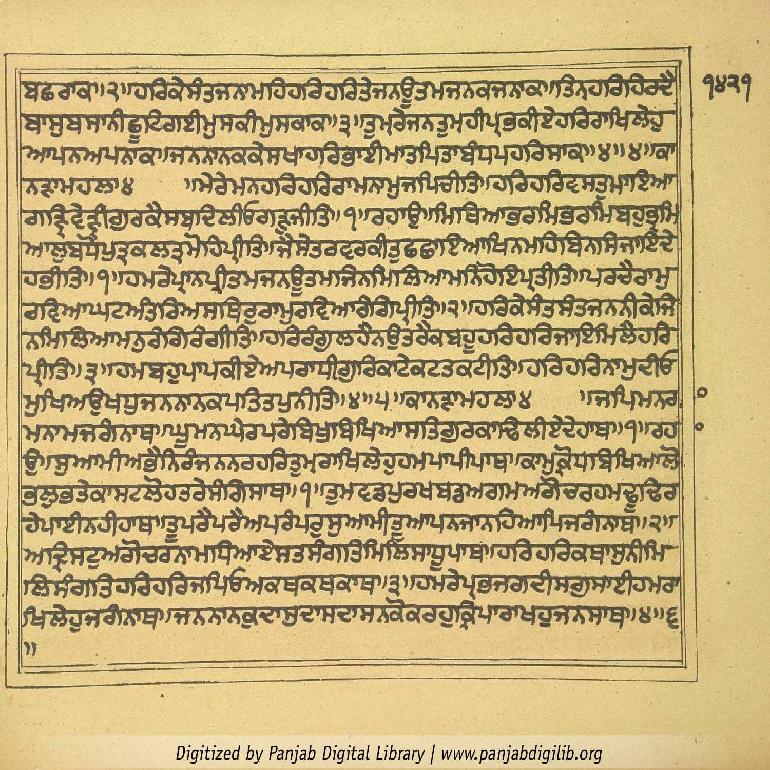 ੧੪੨੧
ਬਛਰਾਕਾ॥੨॥ਹਰਿਕੇਸੰਤਜਨਾਮਹਿਹਰਿਹਰਿਤੇਜਨਊਤਮਜਨਕਜਨਾਕਾ॥ਤਿਨਹਰਿਹਿਰਦੈ
ਬਾਸੁਬਸਾਨੀਛੂਟਿਗਈਮੁਸਕੀਮੁਸਕਾਕਾ॥੩॥ਤੁਮਰੇਜਨਤੁਮਹੀਪ੍ਰਭਕੀਏਹਰਿਰਾਖਿਲੇਹੁ
ਆਪਨਅਪਨਾਕਾ॥ਜਨਨਾਨਕਕੇਸਖਾਹਰਿਭਾਈਮਾਤਪਿਤਾਬੰਧਪਹਰਿਸਾਕਾ॥੪॥੪॥ਕਾ
ਨੜਾਮਹਲਾ੪ ॥ਮੇਰੇਮਨਹਰਿਹਰਿਰਾਮਨਾਮੁਜਪਿਚੀਤਿ॥ਹਰਿਹਰਿਵਸਤੁਮਾਇਆ
ਗੜ੍ਹਿਵੇੜ੍ਹੀਗੁਰਕੈਸਬਦਿਲੀਓਗੜੁਜੀਤਿ॥੧॥ਰਹਾਉ॥ਮਿਥਿਆਭਰਮਿਭਰਮਿਬਹੁਭ੍ਰਮਿ
ਆਲੁਬਧੋਪੁਤ੍ਰਕਲਤ੍ਰਮੋਹਿਪ੍ਰੀਤਿ॥ਜੈਸੇਤਰਵਰਕੀਤੁਛਛਾਇਆਖਿਨਮਹਿਬਿਨਸਿਜਾਇਦੇ
ਹਭੀਤਿ॥੧॥ਹਮਰੇਪ੍ਰਾਨਪ੍ਰੀਤਮਜਨਊਤਮਜਿਨਮਿਲਿਆਮਨਿਹੋਇਪ੍ਰਤੀਤਿ॥ਪਰਚੈਰਾਮੁ
ਰਵਿਆਘਟਅੰਤਰਿਅਸਥਿਰੁਰਾਮੁਰਵਿਆਰੰਗਿਪ੍ਰੀਤਿ॥੨॥ਹਰਿਕੇਸੰਤਸੰਤਜਨਨੀਕੇਜਿ
ਨਮਿਲਿਆਮਨੁਰੰਗਿਰੰਗੀਤਿ॥ਹਰਿਰੰਗੁਲਹੈਨਉਤਰੈਕਬਹੂਹਰਿਹਰਿਜਾਇਮਿਲੈਹਰਿ
ਪ੍ਰੀਤਿ॥੩॥ਹਮਬਹੁਪਾਪਕੀਏਅਪਰਾਧੀਗੁਰਿਕਾਟੇਕਟਤਕਟੀਤਿ॥ਹਰਿਹਰਿਨਾਮੁਦੀਓ
ਮੁਖਿਅਉਖਧੁਜਨਨਾਨਕਪਤਿਤਪੁਨੀਤਿ॥੪॥੫॥ਕਾਨੜਾਮਹਲਾ੪ ॥ਜਪਿਮਨਰਾ
ਮਨਾਮਜਗੰਨਾਥ॥ਘੂਮਨਘੇਰਪਰੇਬਿਖੁਬਿਖਿਆਸਤਿਗੁਰਕਾਢਿਲੀਏਦੇਹਾਥ॥੧॥ਰਹਾ
ਉ॥ਸੁਆਮੀਅਭੈਨਿਰੰਜਨਨਰਹਰਿਤੁਮ੍ਰਾਖਿਲੇਹੁਹਮਪਾਪੀਪਾਥ॥ਕਾਮਕ੍ਰੋਧਬਿਖਿਆਲੋ
ਭਲੁਭਤੇਕਾਸਟਲੋਹਤਰੇਸੰਗਿਸਾਥ॥੧॥ਤੁਮਵਡਪੁਰਖਬਡਅਗਮਅਗੋਚਰਹਮਢੂਢਿਰ
ਹੇਪਾਈਨਹੀਹਾਥ॥ਤੂਪਰੈਪਰੈਅਪਰੰਪਰੁਸੁਆਮੀਤੂਆਪਨਜਾਨਹਿਆਪਿਜਗੰਨਾਥ॥੨॥
ਅਦ੍ਰਿਸਟੁਅਗੋਚਰਨਾਮਧਿਆਏਸਤਸੰਗਤਿਮਿਲਿਸਾਧੂਪਾਥ॥ਹਰਿਹਰਿਕਥਾਸੁਨੀਮਿ
ਲਿਸੰਗਤਿਹਰਿਹਰਿਜਪਿਓਅਕਥਕਥਕਾਥ॥੩॥ਹਮਰੇਪ੍ਰਭਜਗਦੀਸਗੁਸਾਈਹਮਰਾ
ਖਿਲੇਹੁਜਗੰਨਾਥ॥ਜਨਨਾਨਕੁਦਾਸੁਦਾਸਦਾਸਨਕੋਕਰਹੁਕ੍ਰਿਪਾਰਾਖਹੁਜਨਸਾਥ॥੪॥੬
॥
Digitized by Panjab Digital Library | www.panjabdigilib.org